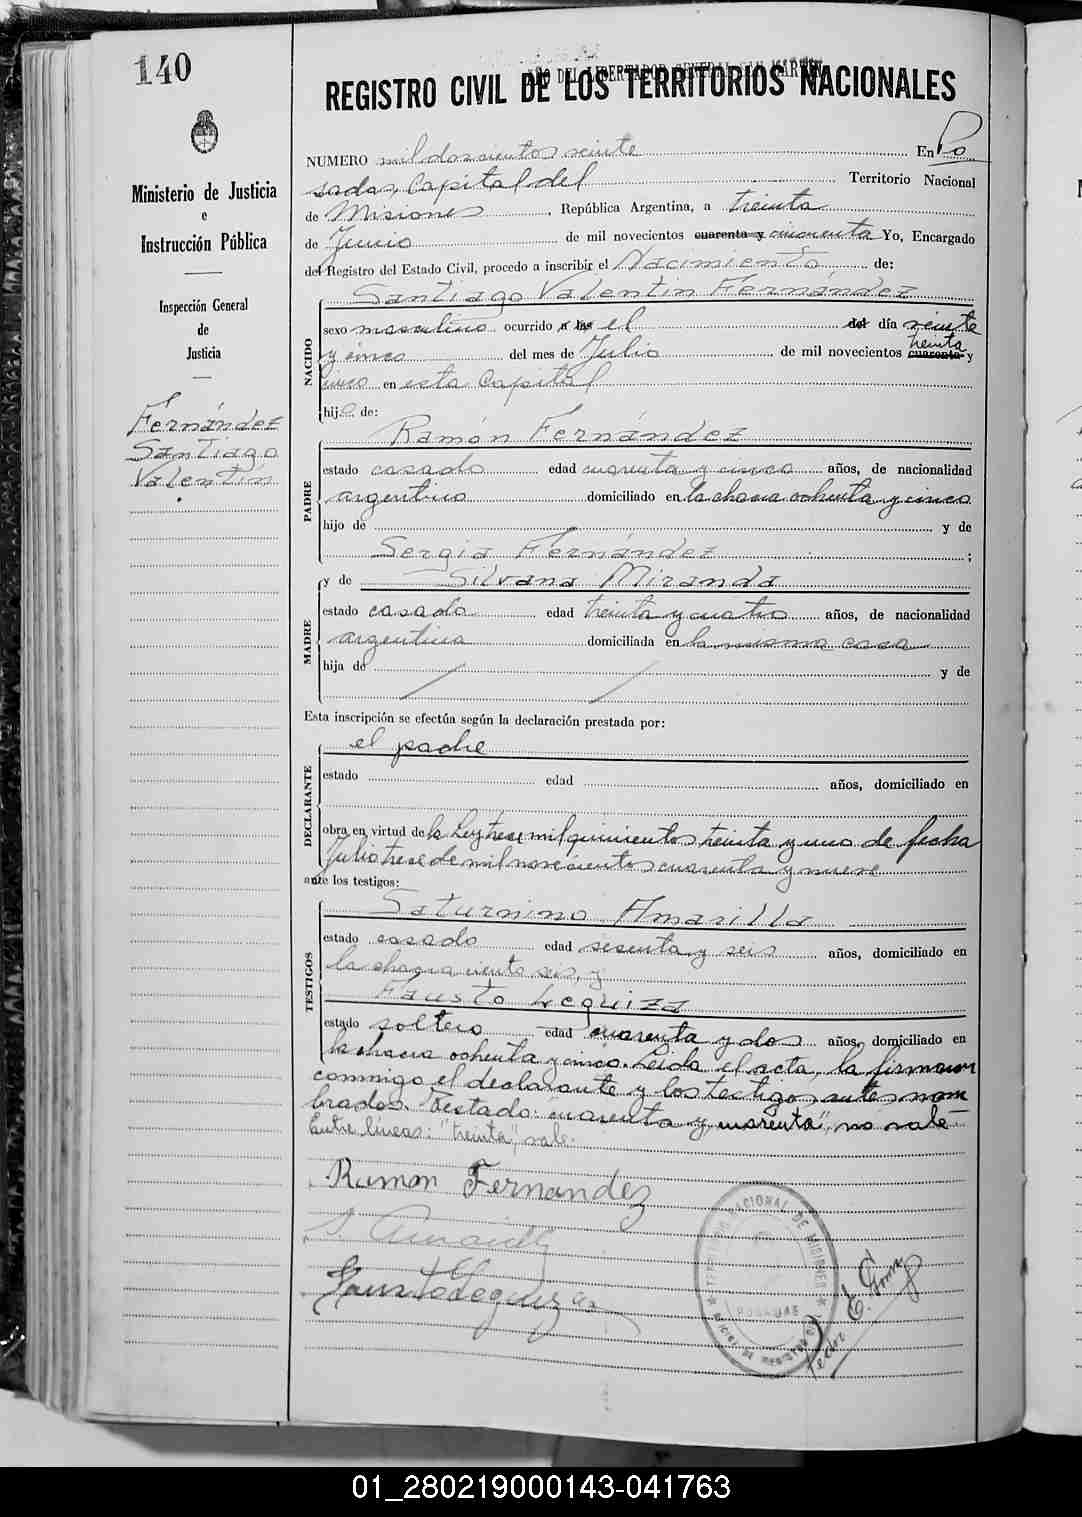 140
AÑO DEL LIBERTADOR GENERAL SAN MARTIN
REGISTRO CIVIL DE LOS TERRITORIOS NACIONALES
Ministerio de Justicia
e
Instrucción Pública
Inspección General
de
Justicia
Fernández
Santiago
Valentín
NUMERO mil doscientos veinte En Po
sadas, Capital del Territorio Nacional
de Misiones, República Argentina, a treinta
de Junio de mil novecientos cuarenta y cincuenta Yo, Encargado
del Registro del Estado Civil, procedo a inscribir el Nacimiento de:
NACIDO
Santiago Valentín Fernández
sexo masculino ocurrido a las el del día veinte
y cinco del mes de Julio de mil novecientos cuarenta treinta y
cinco en esta Capital
hijo de:
PADRE
Ramón Fernández
estado casado edad cuarenta y cinco años, de nacionalidad
argentino domiciliado en la chacra ochenta y cinco
hijo de y de
Sergia Fernández ;
MADRE
y de Silvana Miranda
estado casada edad treinta y cuatro años, de nacionalidad
argentina domiciliada en la misma casa
hija de / / y de
Esta inscripción se efectúa según la declaración prestada por:
DECLARANTE
el padre
estado edad años, domiciliado en
obra en virtud de la Ley trece mil quinientos treinta y uno de fecha
Julio trece de mil novecientos cuarenta y nueve
ante los testigos:
TESTIGOS
Saturnino Amarilla
estado casado edad sesenta y seis años, domiciliado en
la chacra ciento seis, y
Fausto Leguiza
estado soltero edad cuarenta y dos años, domiciliado en
la chacra ochenta y cinco. Leida el acta, la firmaron
conmigo el declarante y los testigos antes nom
brados. Testado: "cuarenta y cuarenta", no vale
Entre líneas: "treinta", vale.
Ramon Fernandez
S. Amarilla
Fausto Leguiza
TERRITORIO NACIONAL DE MISIONES
POSADAS
OFICINA DE REGISTRO CIVIL
01_280219000143-041763